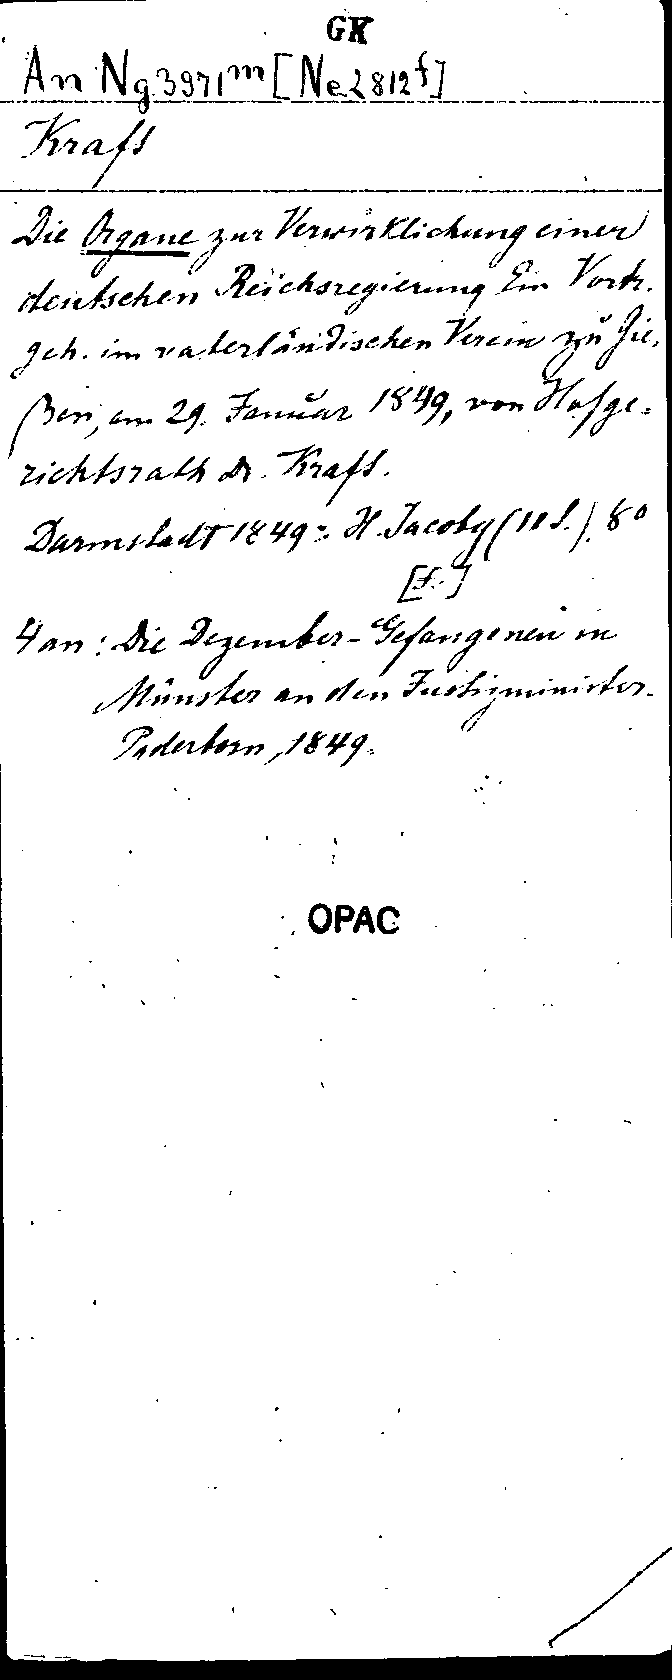 GK
An Ng 3971m [Ne 2812f]
Krafs
Die Organe zur Verwirklichung einer
deutschen Reichsregierung Ein Vortr.
geh. im vaterländischen Verein zu Gie-
ßen, am 29. Januar 1849, von Hofge-
richtsrath Dr. Krafs.
Darmstadt 1849: H. Jacoby (11 S.). 8°
4 an: Die Dezember-Gefangenen in
Münster an den Justizminister.
Paderborn, 1849.
OPAC